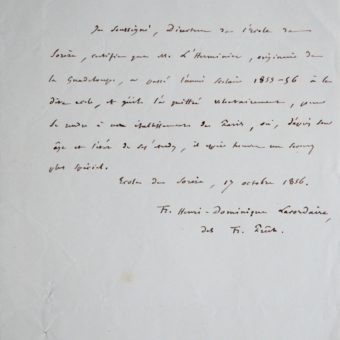 Je soussigné, Directeur de l'école de
Sorèze, certifie que M. L'Herminier, originaire de
la Guadeloupe, a passé l'année scolaire 1855-56 à la
dite école, et qu'il l'a quittée volontairement, pour
se rendre à un établissement de Paris, où, d'après son
âge et l'état de ses études, il espère trouver un
plus spécial.
Ecole de Sorèze, 17 octobre 1856.
Fr. Henri-Dominique Lacordaire,
des Fr. Prêch.